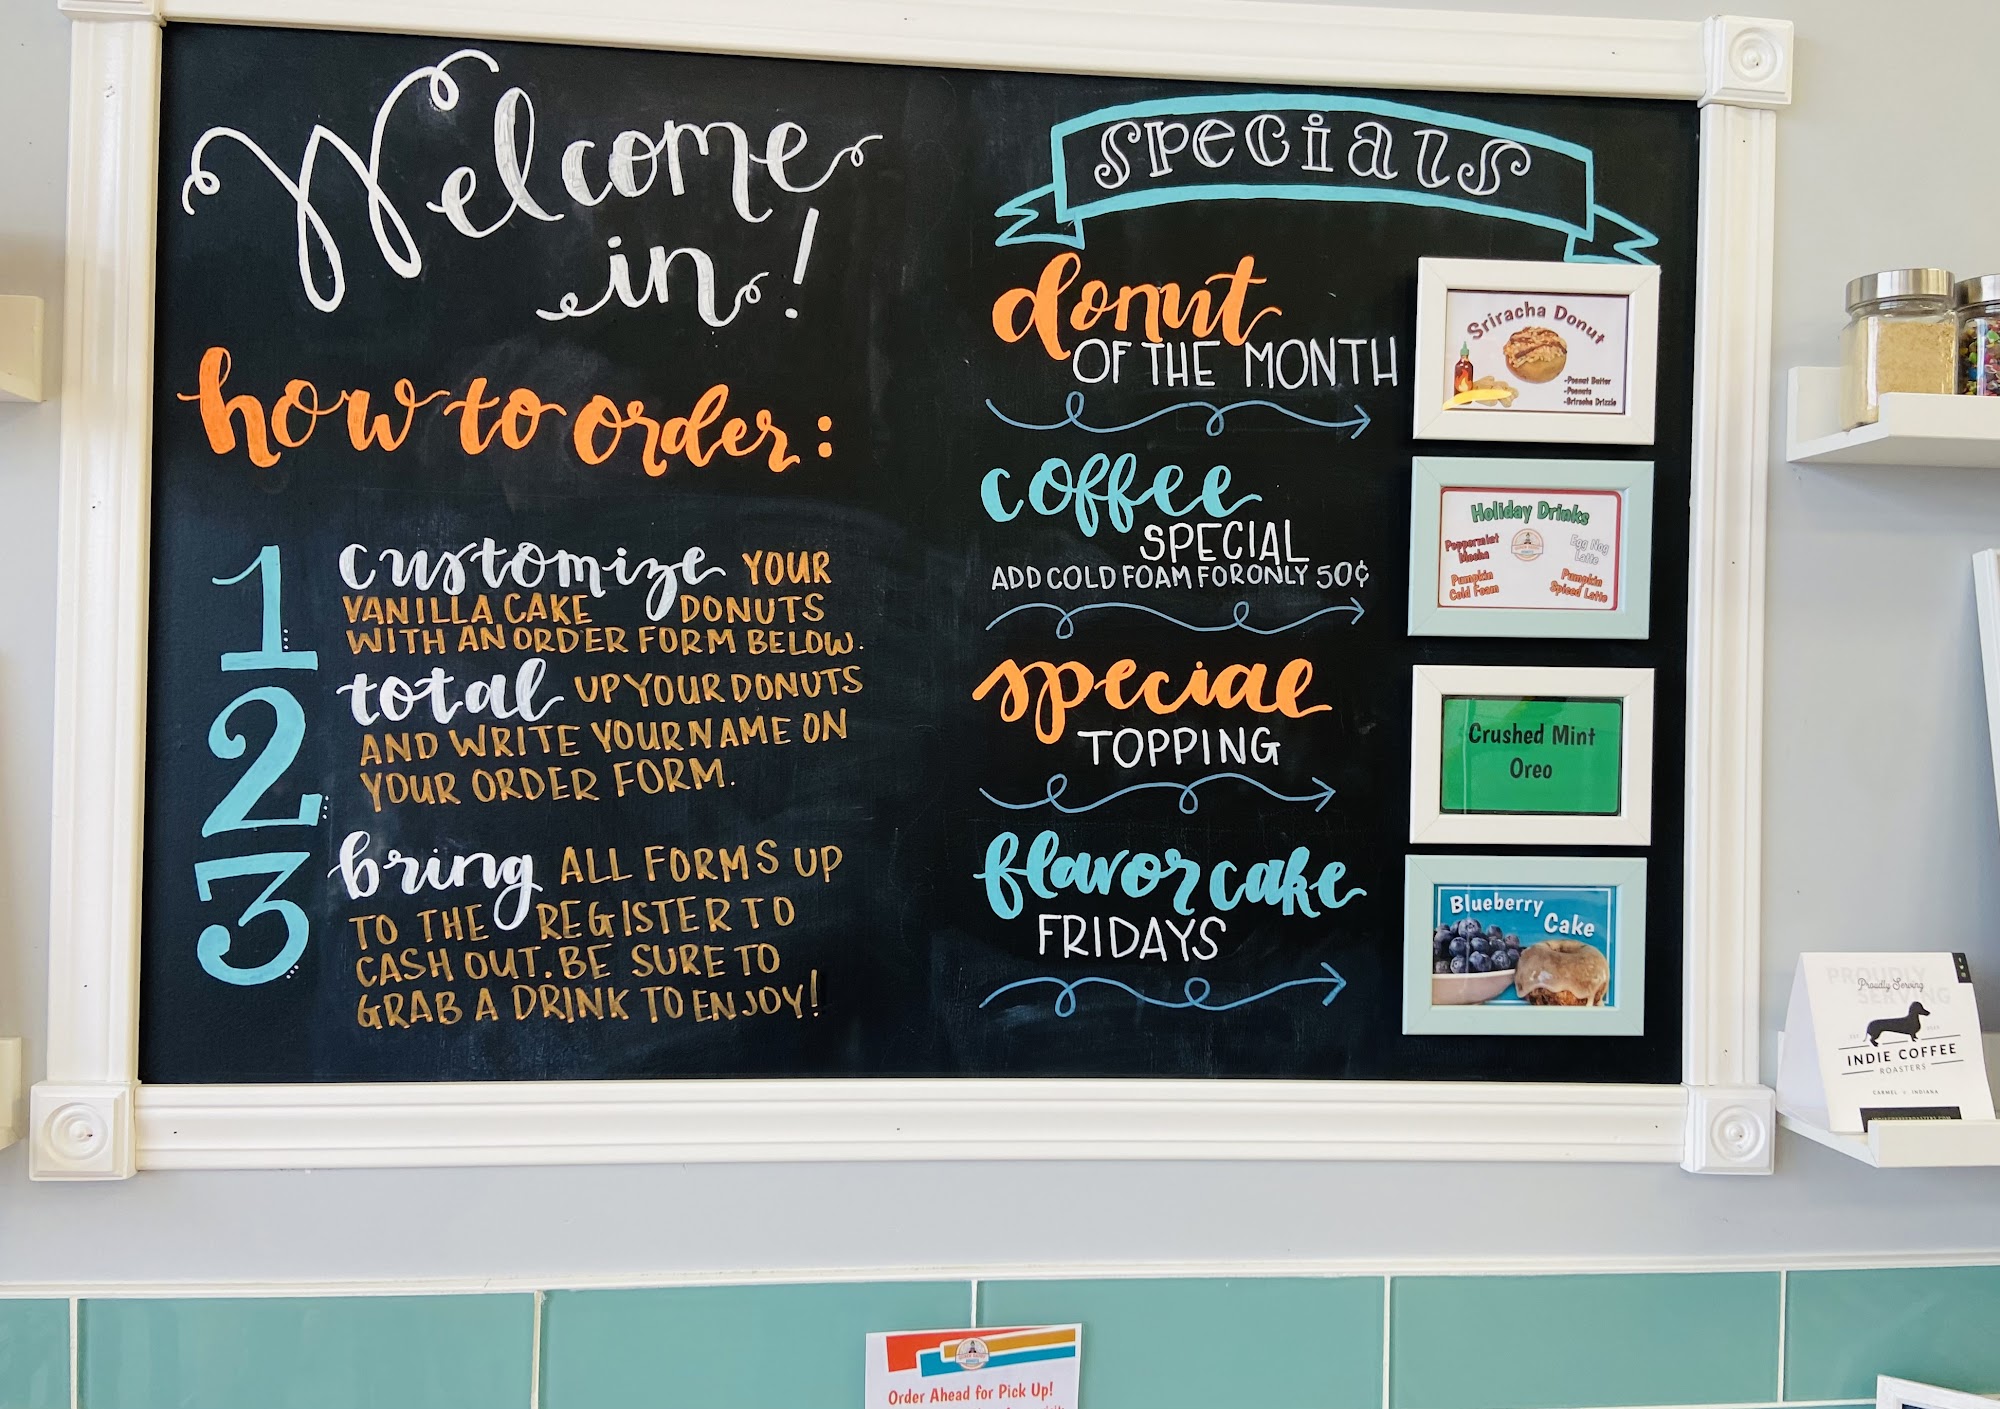 Welcome
in!
how to order:
1 customize YOUR
VANILLA CAKE DONUTS
WITH AN ORDER FORM BELOW.
2 total UP YOUR DONUTS
AND WRITE YOUR NAME ON
YOUR ORDER FORM.
3 bring ALL FORMS UP
TO THE REGISTER TO
CASH OUT. BE SURE TO
GRAB A DRINK TO ENJOY!
Specials
donut
OF THE MONTH
Sriracha Donut
-Peanut Butter
-Peanuts
-Sriracha Drizzle
coffee
SPECIAL
ADD COLD FOAM FOR ONLY 50¢
Holiday Drinks
Peppermint
Mocha
Egg Nog
Latte
Pumpkin
Cold Foam
Pumpkin
Spiced Latte
special
TOPPING
Crushed Mint
Oreo
flavor cake
FRIDAYS
Blueberry
Cake
PROUDLY
SERVING
Proudly Serving
INDIE COFFEE
ROASTERS
CARMEL INDIANA
Order Ahead for Pick Up!